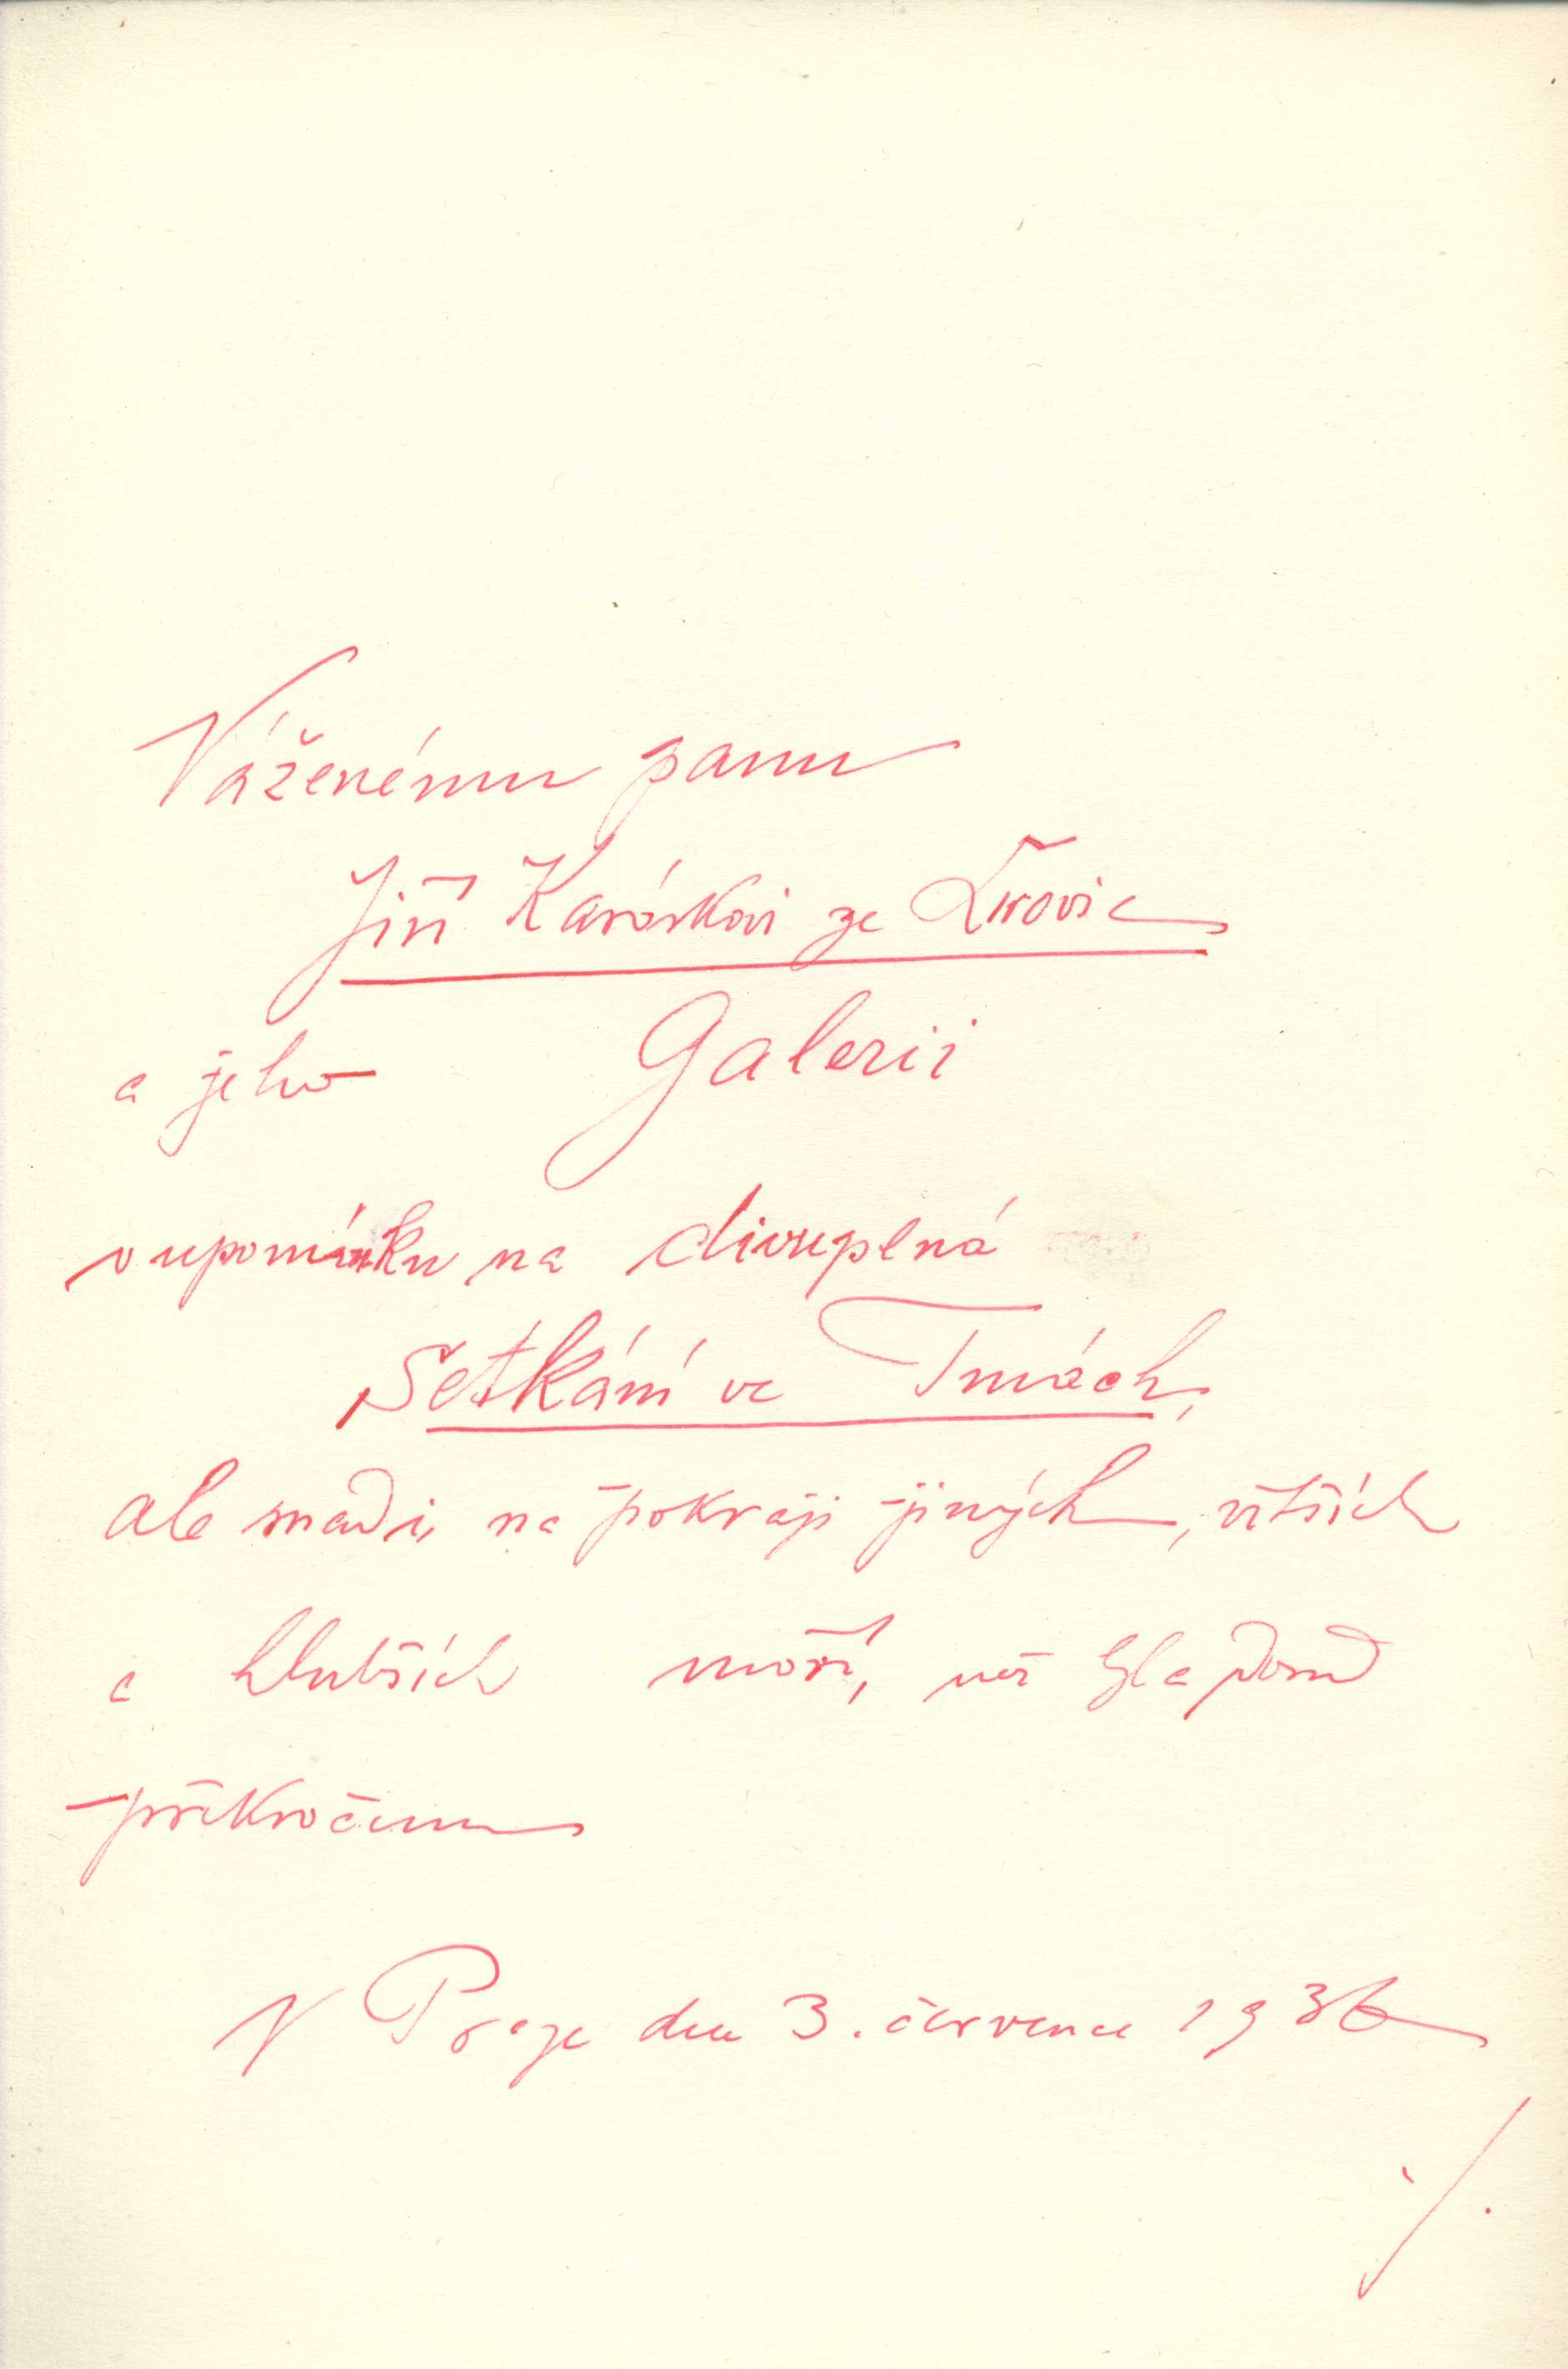 Váženému panu
Jiří Karáskovi ze Lvovic
a jeho Galerii
v upomínku na divuplná
Setkání ve Tmách,
ale snad i na pokraji jiných, větších
a hlubších moří, než byla dosud
překročena
V Praze dne 3. července 1936